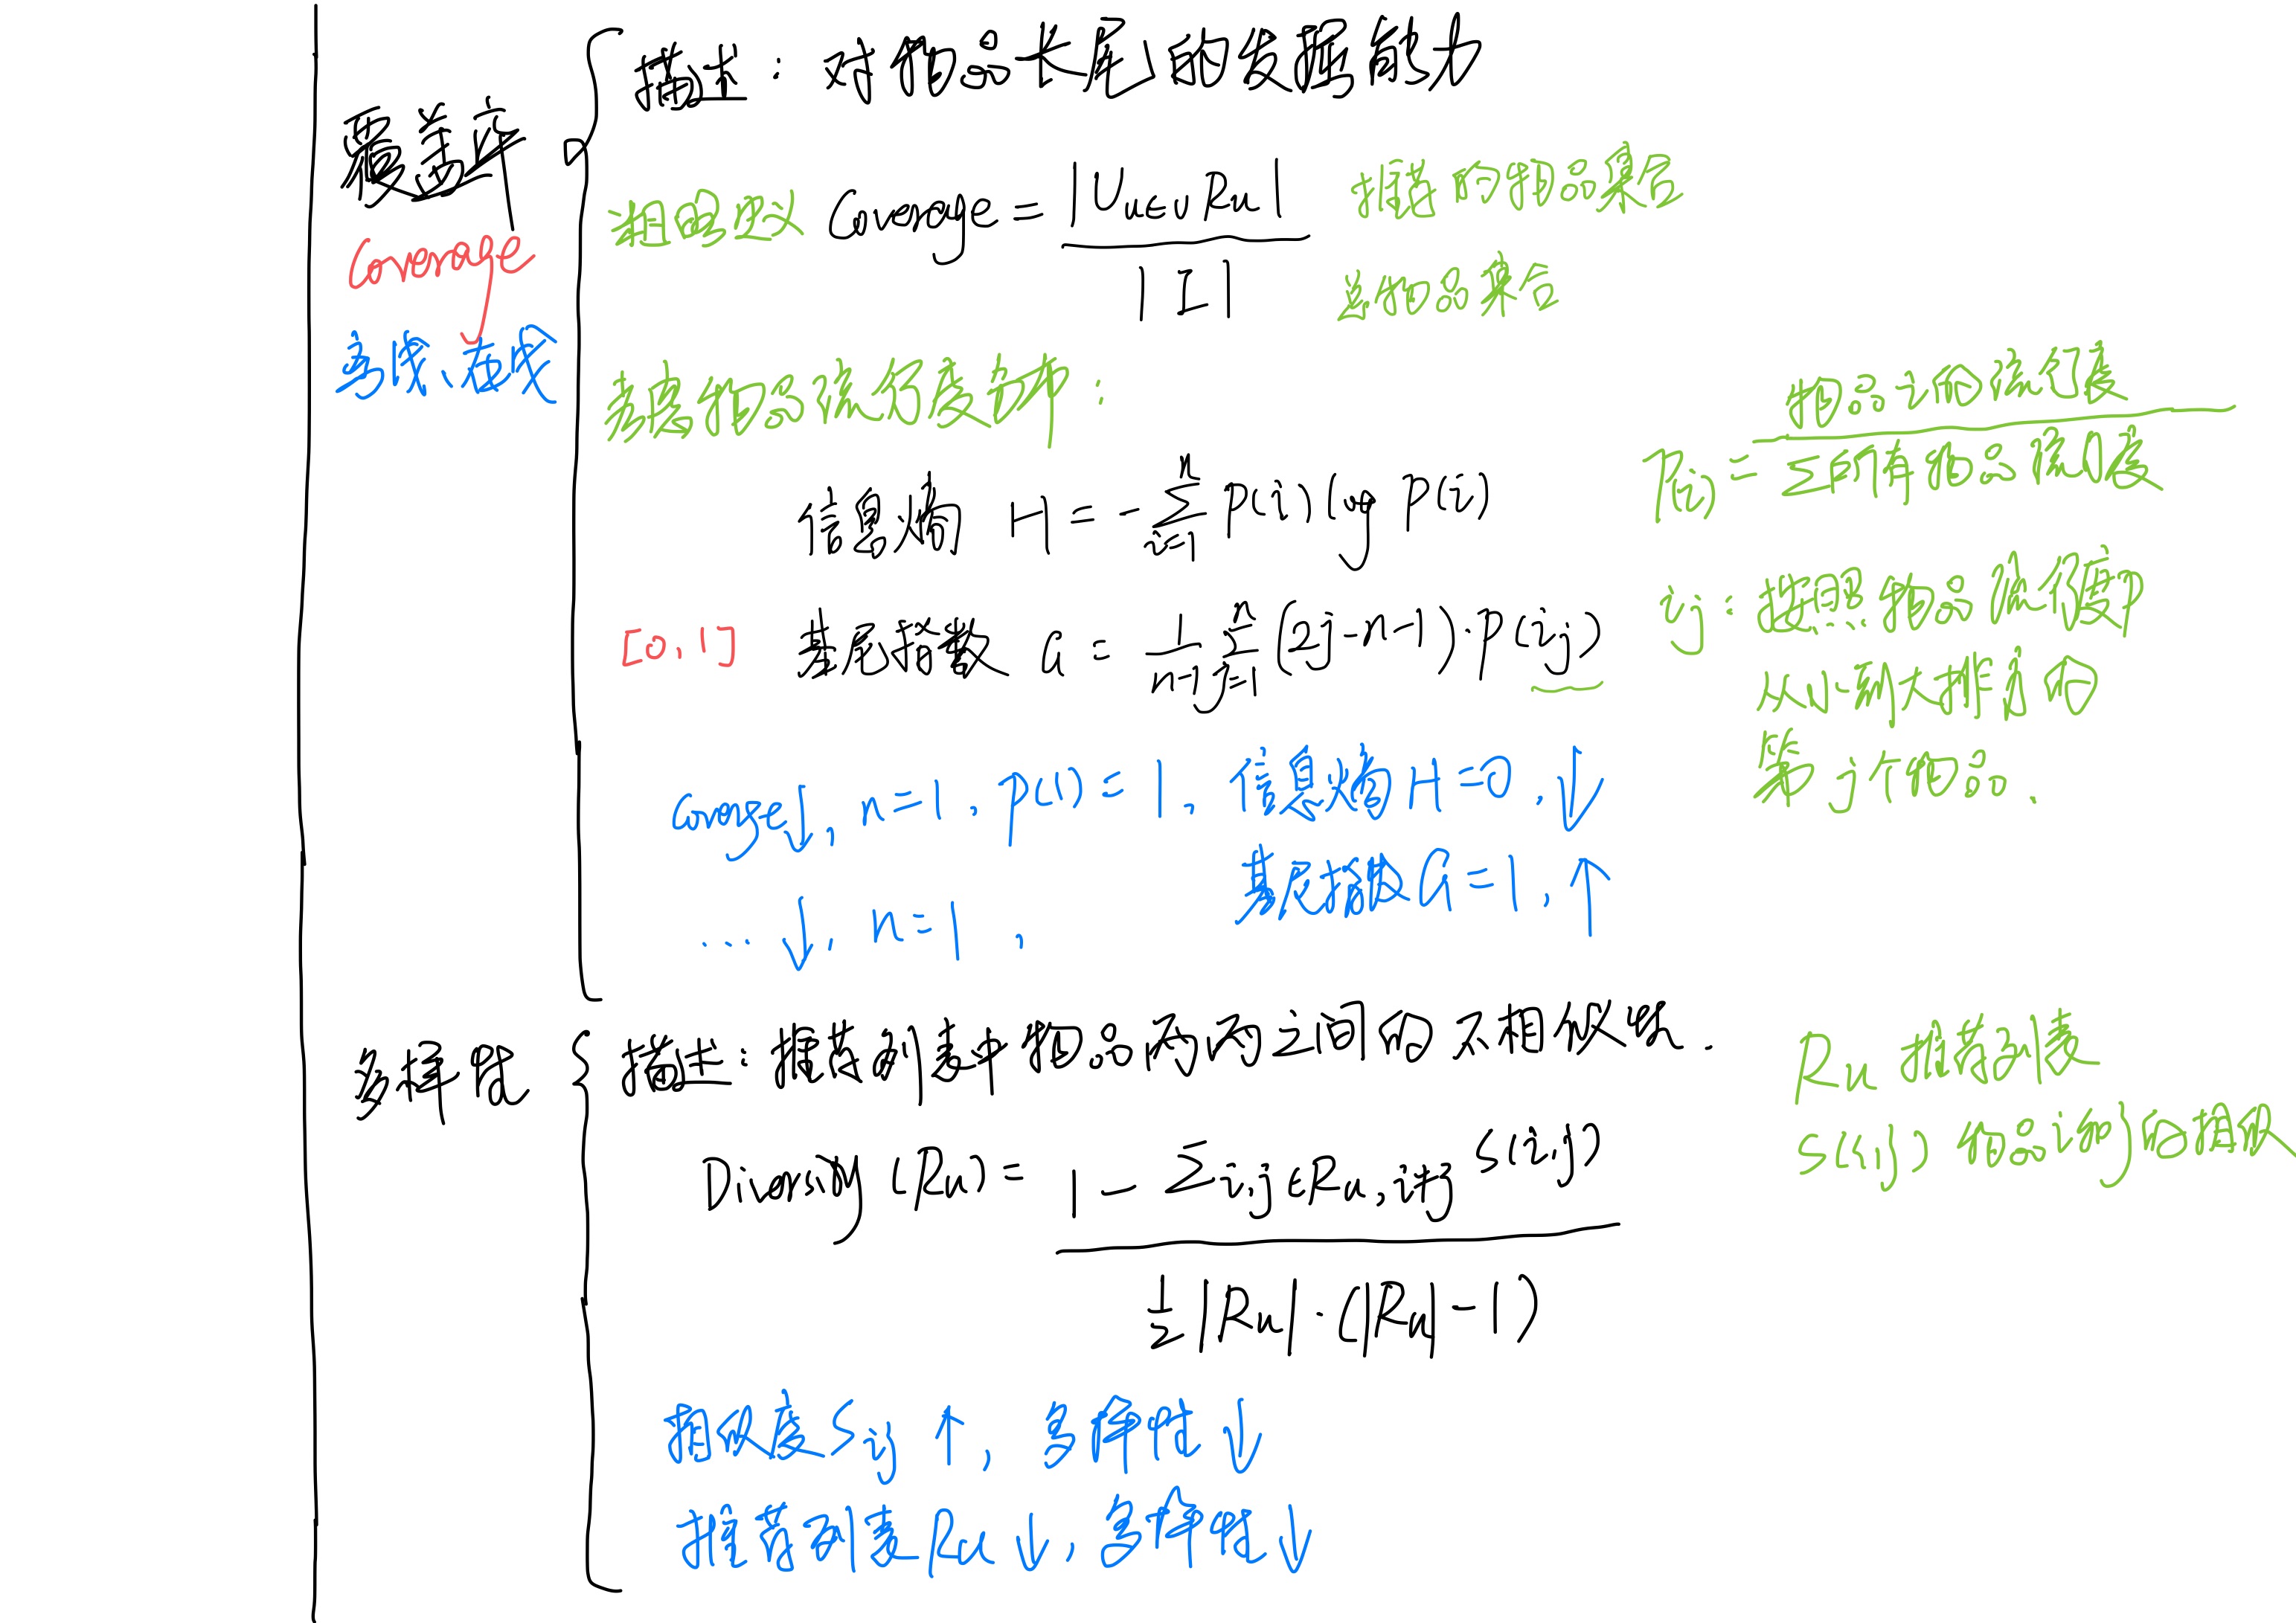 覆盖率
Coverage
多样、
描述：对物品长尾的发掘能力
Coverage = |U_{u∈U} R_u| / |I|
推荐的物品集合
总物品集合
根据物品流行度分布：
信息熵 H = -∑_{i=1}^{n} P(i) lg P(i)
P(i) = 物品i的流行度 / ∑所有物品流行度
[0,1] 基尼指数 G = 1/(n-1) ∑_{j=1}^{n} (2j-n-1)·P(i_j)
i_j：按照物品流行度
从小到大排序的
第j个物品.
coverage↓, n=1, p(1)=1, 信息熵H=0, ↓
基尼指数G=1, ↑
... ↓, n=1 ,
多样性
描述：推荐列表中物品两两之间的不相似性.
R_u 推荐列表
S(i,j) 物品i和j的相似
Diversity(R_u) = 1 - ∑_{i,j∈R_u, i≠j} S(i,j) / ½|R_u|·(|R_u|-1)
相似度S_ij ↑, 多样性↓
推荐列表R_u ↓, 多样性↓